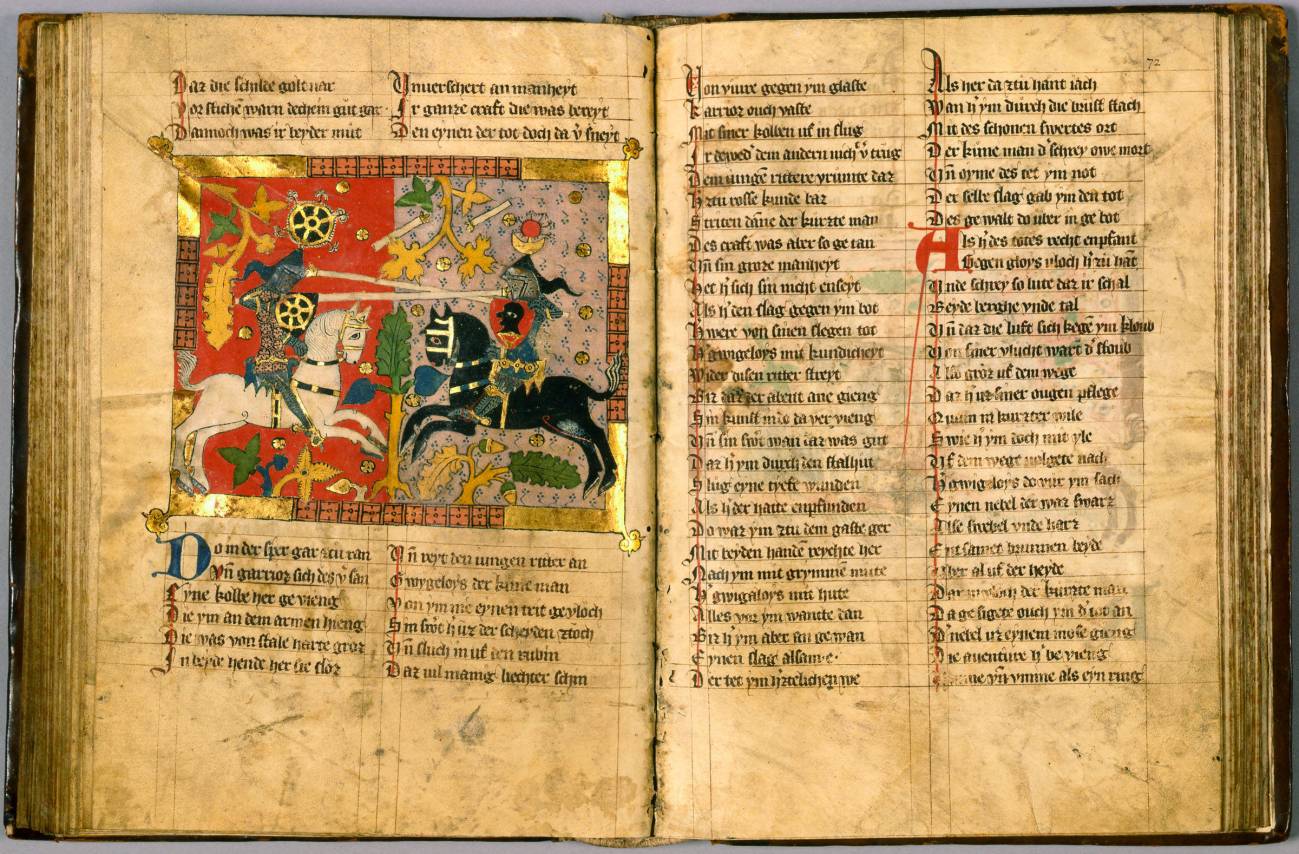 Daz die schilde golt nar
Vor stiche warn dechein gut gar
Dannoch was ir beyder mut
Vnuerschert an manheyt
Ir ganze craft die was bereyt
Den eynen der tot doch da v̄sneyt
Do in der sper gar zturan
Vn̄ garrioz sich des v̄san
Eyne kolbe her gevieng
Die ym an dem armen hieng
Die was von stale harte groz
In beyde hende her sie sloz
Vn̄ reyt den iungen ritter an
Gwygeloys der kune man
Von ym nie eynen trit gevloch
Sin swˢt h̓ uz der scheyden ztoch
Vn̄ sluch in uf den rubin
Daz uil manig liechter schin
72
Von viure gegen ym glaste
Karrioz ouch vaste
Mit siner kolben uf in slug
Ir dewedˢ dem andern nich v̓trug
Dem iungē rittere vrumte daz
H̓ ztu rosse kunde baz
Striten dāne der kurzte man
Des craft was aber so getan
Vn̄ sin groze manheyt
Het h̓ sich sin nicht enseyt
Als h̓ den slag gegen ym bot
H̓ were von sinen slegen tot
H̓ gwigeloys mit kundicheyt
Wider disen ritter streyt
Biz daz der abent ane gieng
Sin kunst in do da ver vieng
Vn̄ sin swˢt wan daz was gut
Daz h̓ ym durch den stalhut
Slug eyne tyefe wunden
Als h̓ der hatte enpfunden
Do waz ym ztu dem gaste ger
Mit beyden handē reychte her
Nach ym mit grymmē mute
H̓ gwigaloys mit hute
Alles vor ym wancte dan
Biz h̓ ym aber an gewan
Eynen slag alsam e
Der tet ym h̓tzelichen we
Als her da ztu hant iach
Wan h̓ ym durch die brust stach
Mit des schonen swertes ort
Der kune man dˢ schrey owe mort
Vn̄ oyme des tet ym not
Der selbe slag gab ym den tot
Des gewalt do uber in gebot
Als h̓ des totes recht enpfant
Gegen gloys vloch h̓ zu hāt
Vnde schrey so lute daz ir schal
Beyde berghe vnde tal
Vn̄ daz die luft sich kegē ym kloub
Von siner vlucht wart dˢ stoub
Also groz uf dem wege
Daz h̓ uz siner ougen pflege
Quam in kurzter wile
Swie h̓ ym doch mit yle
Vf dem wege volgete nach
H̓ gwigeloys do vur ym sach
Eynen nebel der waz swarz
Alse swebel vnde harz
Ent samet brunnen beyde
Aber al uf der heyde
Dar in vloch der kurzte man
Da gesigete ouch ym dˢ tot an
Dˢ nebel uz eynem mose gieng
Die auenture h̓ bevieng
vmme vn̄ vmme als eyn ring